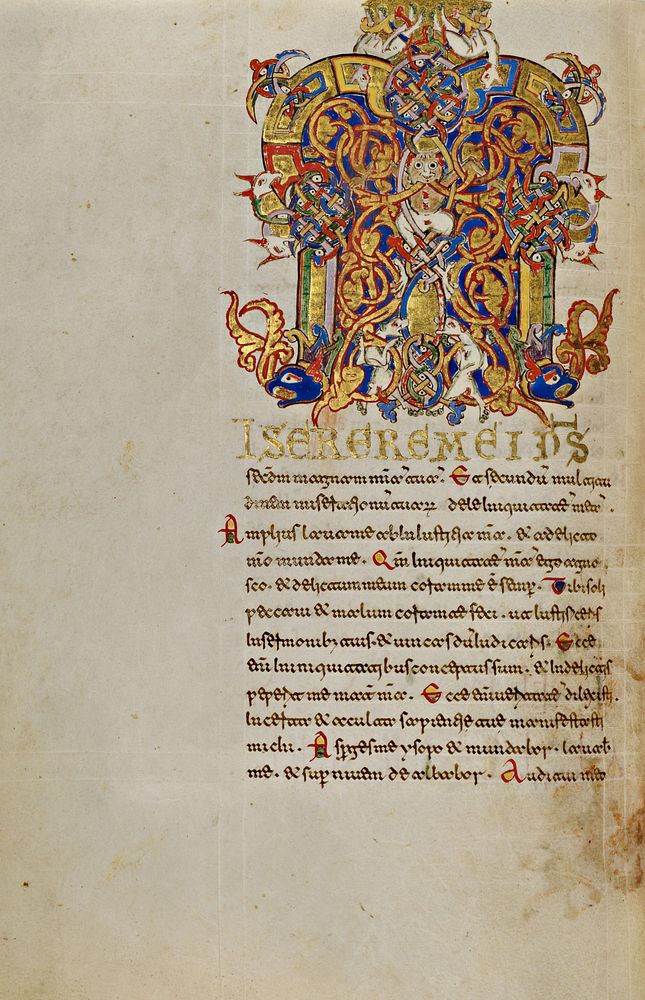 MISERERE MEI D̄S
secdm magnam miam tuam. Et secundū multitu
dinem miserationū tuarū dele iniquitatē meā.
Amplius lava me ab iniustitia mea. & a delicto
meo munda me. Qm iniquitatē meā ego agno
sco. & delictum meum coram me ē semp. Tibi soli
peccavi & malum coram te feci. ut iustificeris
in sermonib; tuis. & vincas dū iudicaris. Ecce
enī in iniquitatibus conceptus sum. & in delictis
peperit me mater mea. Ecce enī veritatē dilexisti.
incerta & occulta sapientiae tuae manifestasti
michi. Asperges me ysopo & mundabor. lavab
me. & sup nivem dealbabor. Auditui meo